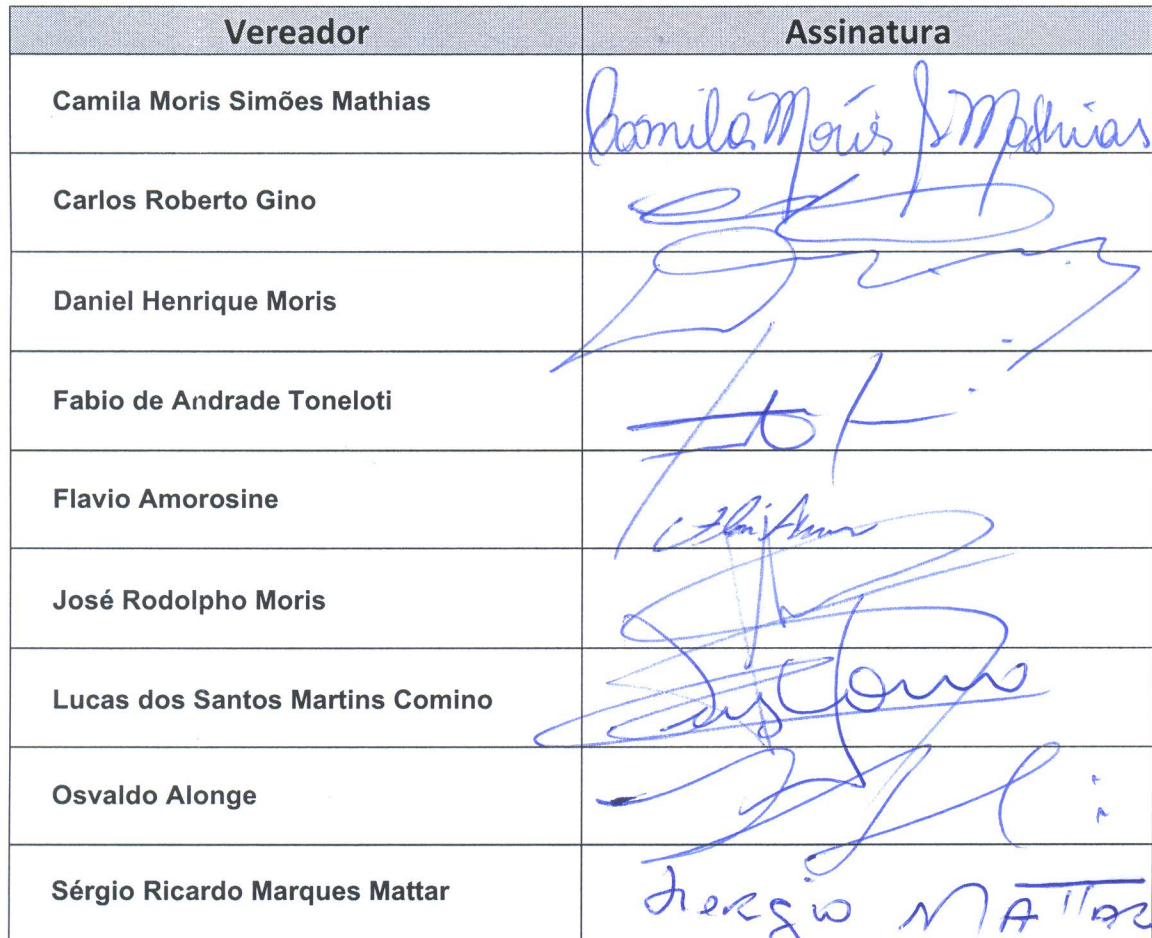 Vereador Assinatura
Camila Moris Simões Mathias Camila Moris S Mathias
Carlos Roberto Gino
Daniel Henrique Moris
Fabio de Andrade Toneloti
Flavio Amorosine
José Rodolpho Moris
Lucas dos Santos Martins Comino
Osvaldo Alonge
Sérgio Ricardo Marques Mattar Sergio MATTAR